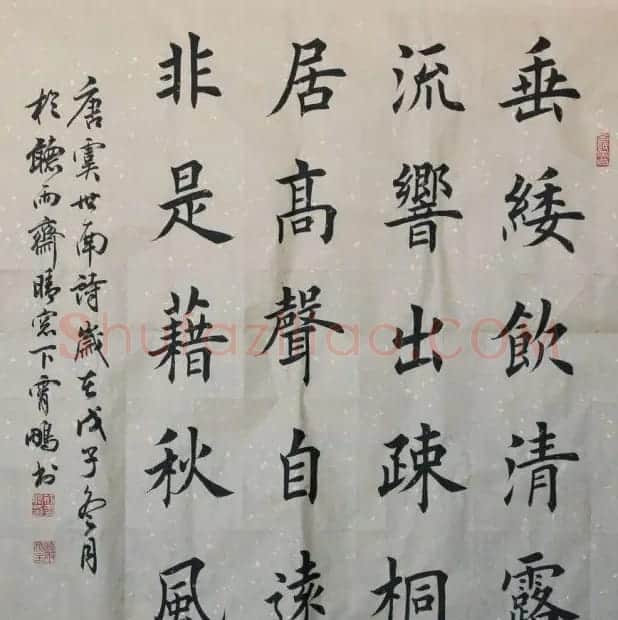 垂緌飲清露
流響出疎桐
居高聲自遠
非是藉秋風
唐虞世南詩歲在戊子冬月
於聽雨齋晴窓下霄鵬书
Shufaziliao.COM